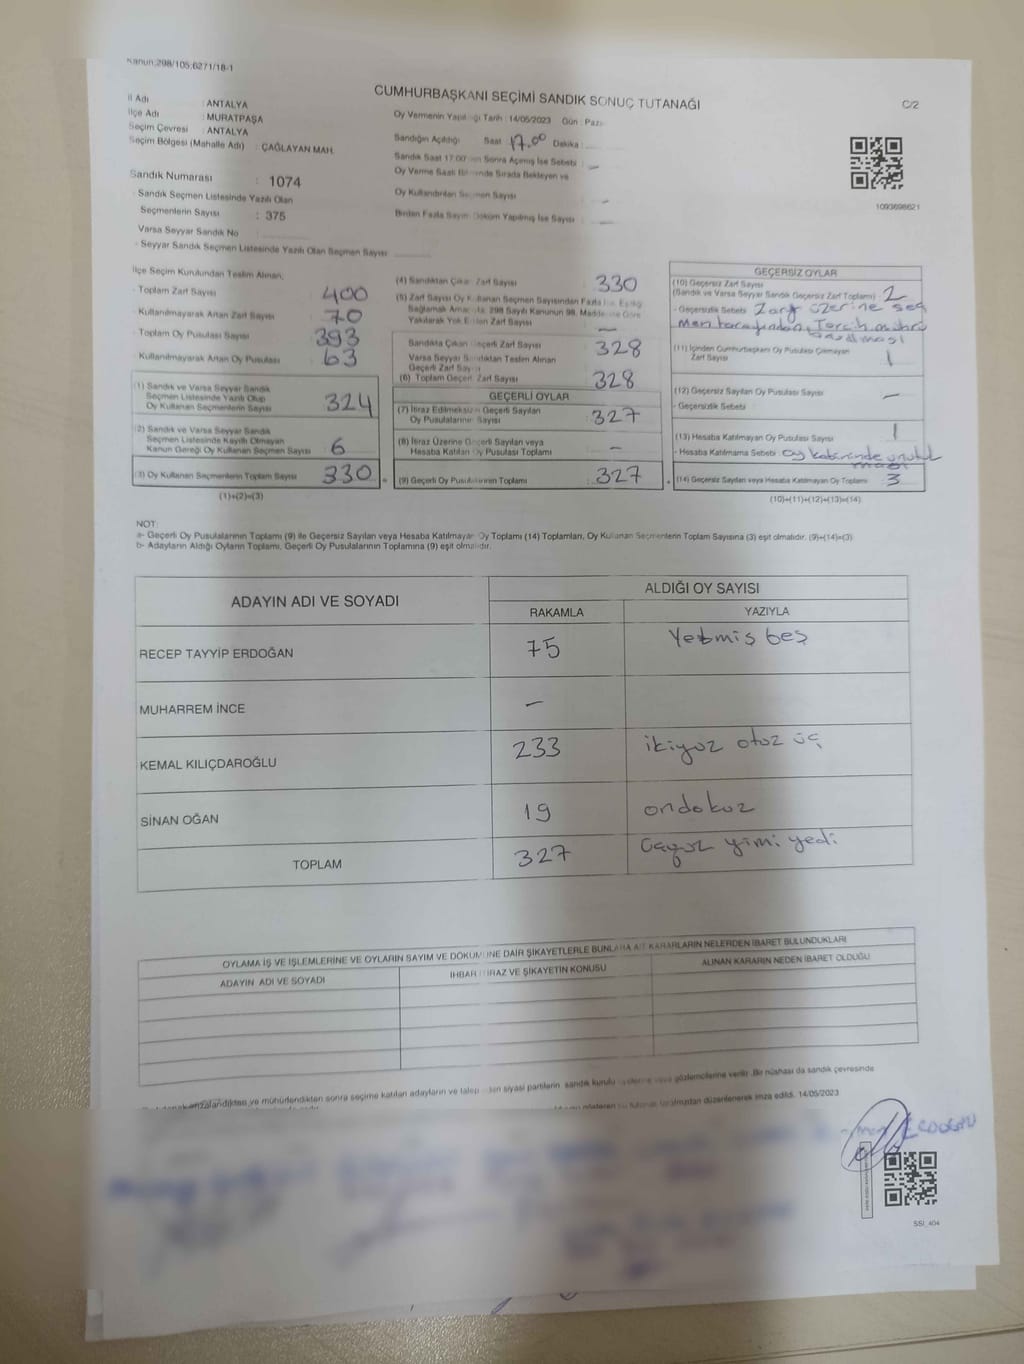 Kanun:298/105;6271/18-1
CUMHURBAŞKANI SEÇİMİ SANDIK SONUÇ TUTANAĞI
C/2
İl Adı : ANTALYA
İlçe Adı : MURATPAŞA
Seçim Çevresi : ANTALYA
Seçim Bölgesi (Mahalle Adı) : ÇAĞLAYAN MAH.
Sandık Numarası : 1074
Sandık Seçmen Listesinde Yazılı Olan
Seçmenlerin Sayısı : 375
Varsa Seyyar Sandık No
Seyyar Sandık Seçmen Listesinde Yazılı Olan Seçmen Sayısı
Oy Vermenin Tarih : 14/05/2023 Gün :
Sandığın Açıldığı Saat 17.00 Dakika :
Sandık Saat 17:00 Sonra Açılmış İse Sebebi : -
Oy Verme Saati Sırada Bekleyen ve
Oy Kullandırılan Seçmen Sayısı -
Birden Fazla Sayım Döküm Yapılmış İse Sayısı
1093698621
İlçe Seçim Kurulundan Teslim Alınan;
- Toplam Zarf Sayısı 400
- Kullanılmayarak Artan Zarf Sayısı : 70
- Toplam Oy Pusulası Sayısı 393
- Kullanılmayarak Artan Oy Pusulası 63
(1) Sandık ve Varsa Seyyar Sandık
Seçmen Listesinde Yazılı Olup
Oy Kullanan Seçmenlerin Sayısı : 324
(2) Sandık ve Varsa Seyyar Sandık
Seçmen Listesinde Kayıtlı Olmayan
Kanun Gereği Oy Kullanan Seçmen Sayısı 6
(3) Oy Kullanan Seçmenlerin Toplam Sayısı 330
(1)+(2)=(3)
(4) Sandıktan Çıkan Zarf Sayısı : 330
(5) Zarf Sayısı Oy Kullanan Seçmen Sayısından Fazla Eşitliği
Sağlamak 298 Sayılı Kanunun 98. Göre
Yakılarak Yok Edilen Zarf Sayısı -
Sandıkta Çıkan Geçerli Zarf Sayısı : 328
Varsa Seyyar Sandıktan Teslim Alınan
Geçerli Zarf Sayısı
(6) Toplam Geçerli Zarf Sayısı 328
GEÇERLİ OYLAR
(7) İtiraz Edilmeksizin Geçerli Sayılan
Oy Pusulalarının Sayısı : 327
(8) İtiraz Üzerine Geçerli Sayılan veya
Hesaba Katılan Oy Pusulası Toplamı -
(9) Geçerli Oy Pusulalarının Toplamı : 327
GEÇERSİZ OYLAR
(10) Geçersiz Zarf Sayısı
(Sandık ve Varsa Seyyar Sandık Geçersiz Zarf Toplamı) 2
- Geçersizlik Sebebi Zarf üzerine seç
men tarafından Tercih mührü
basılması
(11) İçinden Cumhurbaşkanı Oy Pusulası Çıkmayan
Zarf Sayısı 1
(12) Geçersiz Sayılan Oy Pusulası Sayısı -
- Geçersizlik Sebebi
(13) Hesaba Katılmayan Oy Pusulası Sayısı 1
- Hesaba Katılmama Sebebi oy kabininde unutul
ması
(14) Geçersiz Sayılan veya Hesaba Katılmayan Oy Toplamı : 3
(10)+(11)+(12)+(13)=(14)
NOT:
a- Geçerli Oy Pusulalarının Toplamı (9) ile Geçersiz Sayılan veya Hesaba Katılmayan Oy Toplamı (14) Toplamları, Oy Kullanan Seçmenlerin Toplam Sayısına (3) eşit olmalıdır. (9)+(14)=(3)
b- Adayların Aldığı Oyların Toplamı, Geçerli Oy Pusulalarının Toplamına (9) eşit olmalıdır.
ADAYIN ADI VE SOYADI ALDIĞI OY SAYISI
RAKAMLA YAZIYLA
RECEP TAYYİP ERDOĞAN 75 Yetmiş beş
MUHARREM İNCE -
KEMAL KILIÇDAROĞLU 233 ikiyüz otuz üç
SİNAN OĞAN 19 ondokuz
TOPLAM 327 üçyüz yimi yedi
OYLAMA İŞ VE İŞLEMLERİNE VE OYLARIN SAYIM VE DÖKÜMÜNE DAİR ŞİKAYETLERLE BUNLARA AİT KARARLARIN NELERDEN İBARET BULUNDUKLARI
ADAYIN ADI VE SOYADI İHBAR İTİRAZ VE ŞİKAYETİN KONUSU ALINAN KARARIN NEDEN İBARET OLDUĞU
ve mühürlendikten sonra seçime katılan adayların ve talep eden siyasi partilerin sandık kurulu üyelerine veya gözlemcilerine verilir. Bir nüshası da sandık çevresinde
düzenlenerek imza edildi. 14/05/2023
ERDOĞAN
SSI_404